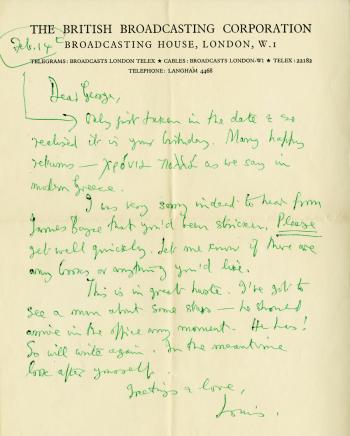 THE BRITISH BROADCASTING CORPORATION
BROADCASTING HOUSE, LONDON, W.1
TELEGRAMS: BROADCASTS LONDON TELEX ★ CABLES: BROADCASTS LONDON-W1 ★ TELEX: 22182
TELEPHONE: LANGHAM 4468
Feb. 14th
Dear George,
Only just taken in the date & so
realised it is your birthday. Many happy
returns — χρόνια πολλά as we say in
modern Greece.
I was very sorry indeed to hear from
James Boyce that you'd been stricken. Please
get well quickly. Let me know if there are
any books or anything you'd like.
This is in great haste. I've got to
see a man about some — he should
arrive in the office any moment. He has!
So will write again. In the meantime
look after yourself.
Greetings & love,
Louis.